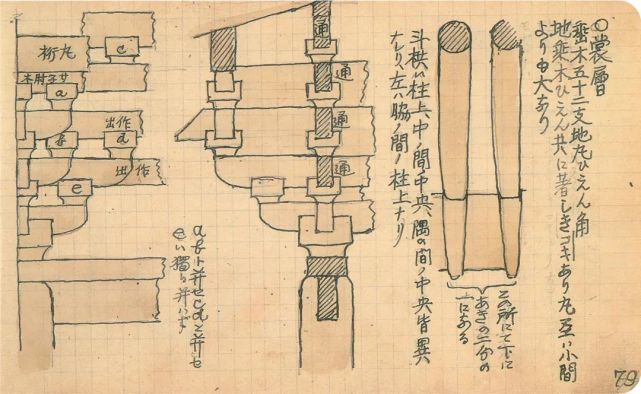 〇裳層
垂木五十二支地丸ひえん角
地垂木ひえん共に著しきコキあり丸垂ハ小間
より由大あり
この所にて下に
あきの二分の
一にある
斗栱ハ柱上、中ノ間中央、隅の間ノ中央皆異
ナレリ、左ハ脇ノ間ノ柱上ナリ
通
通
通
通
c
桁丸
木肘子廿
a
出作
b
d
出作
e
aト弁せcdニ弁せ
eハ獨リ弁ハず
79